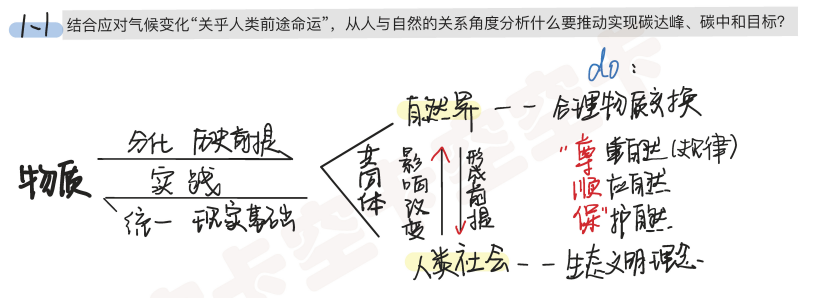 1-1 结合应对气候变化“关乎人类前途命运”，从人与自然的关系角度分析什么要推动实现碳达峰、碳中和目标？
do：
自然界 -- 合理物质交换
分化 历史前提
物质 实践
统一 现实基础
共同体
影响改变
形成前提
“尊重自然（规律）
顺应自然
保”护自然
人类社会 -- 生态文明理念